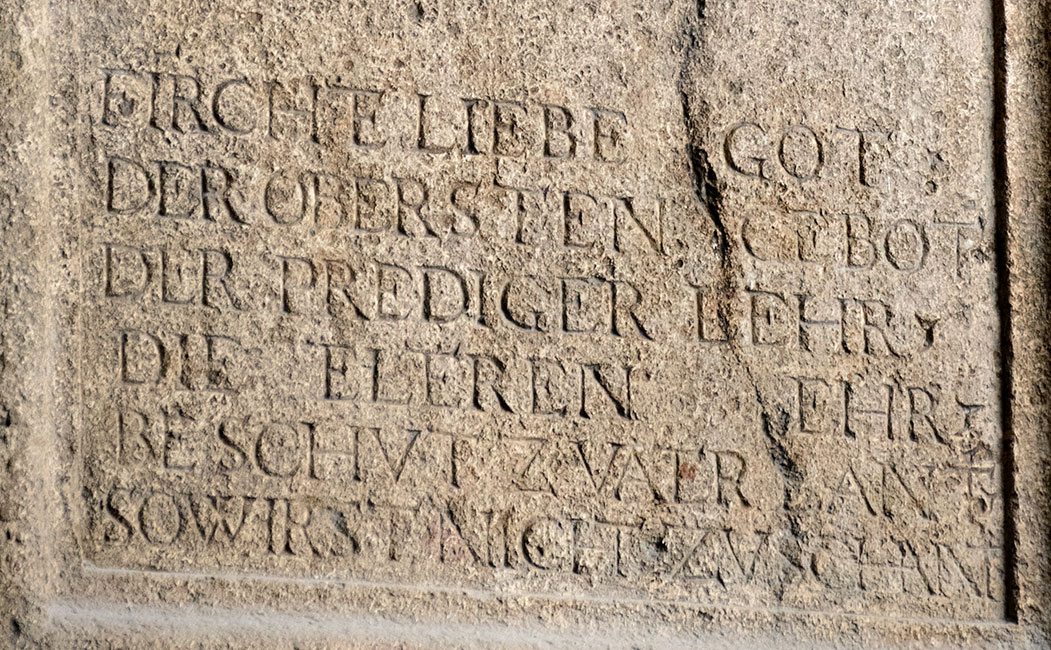 FIRCHTE LIEBE GOT
DER OBERSTEN GEBOT
DER PREDIGER LEHR,
DIE ELTEREN EHR
BESCHVT ZVATER AN
SO WIRST NICHT ZV SCHANT